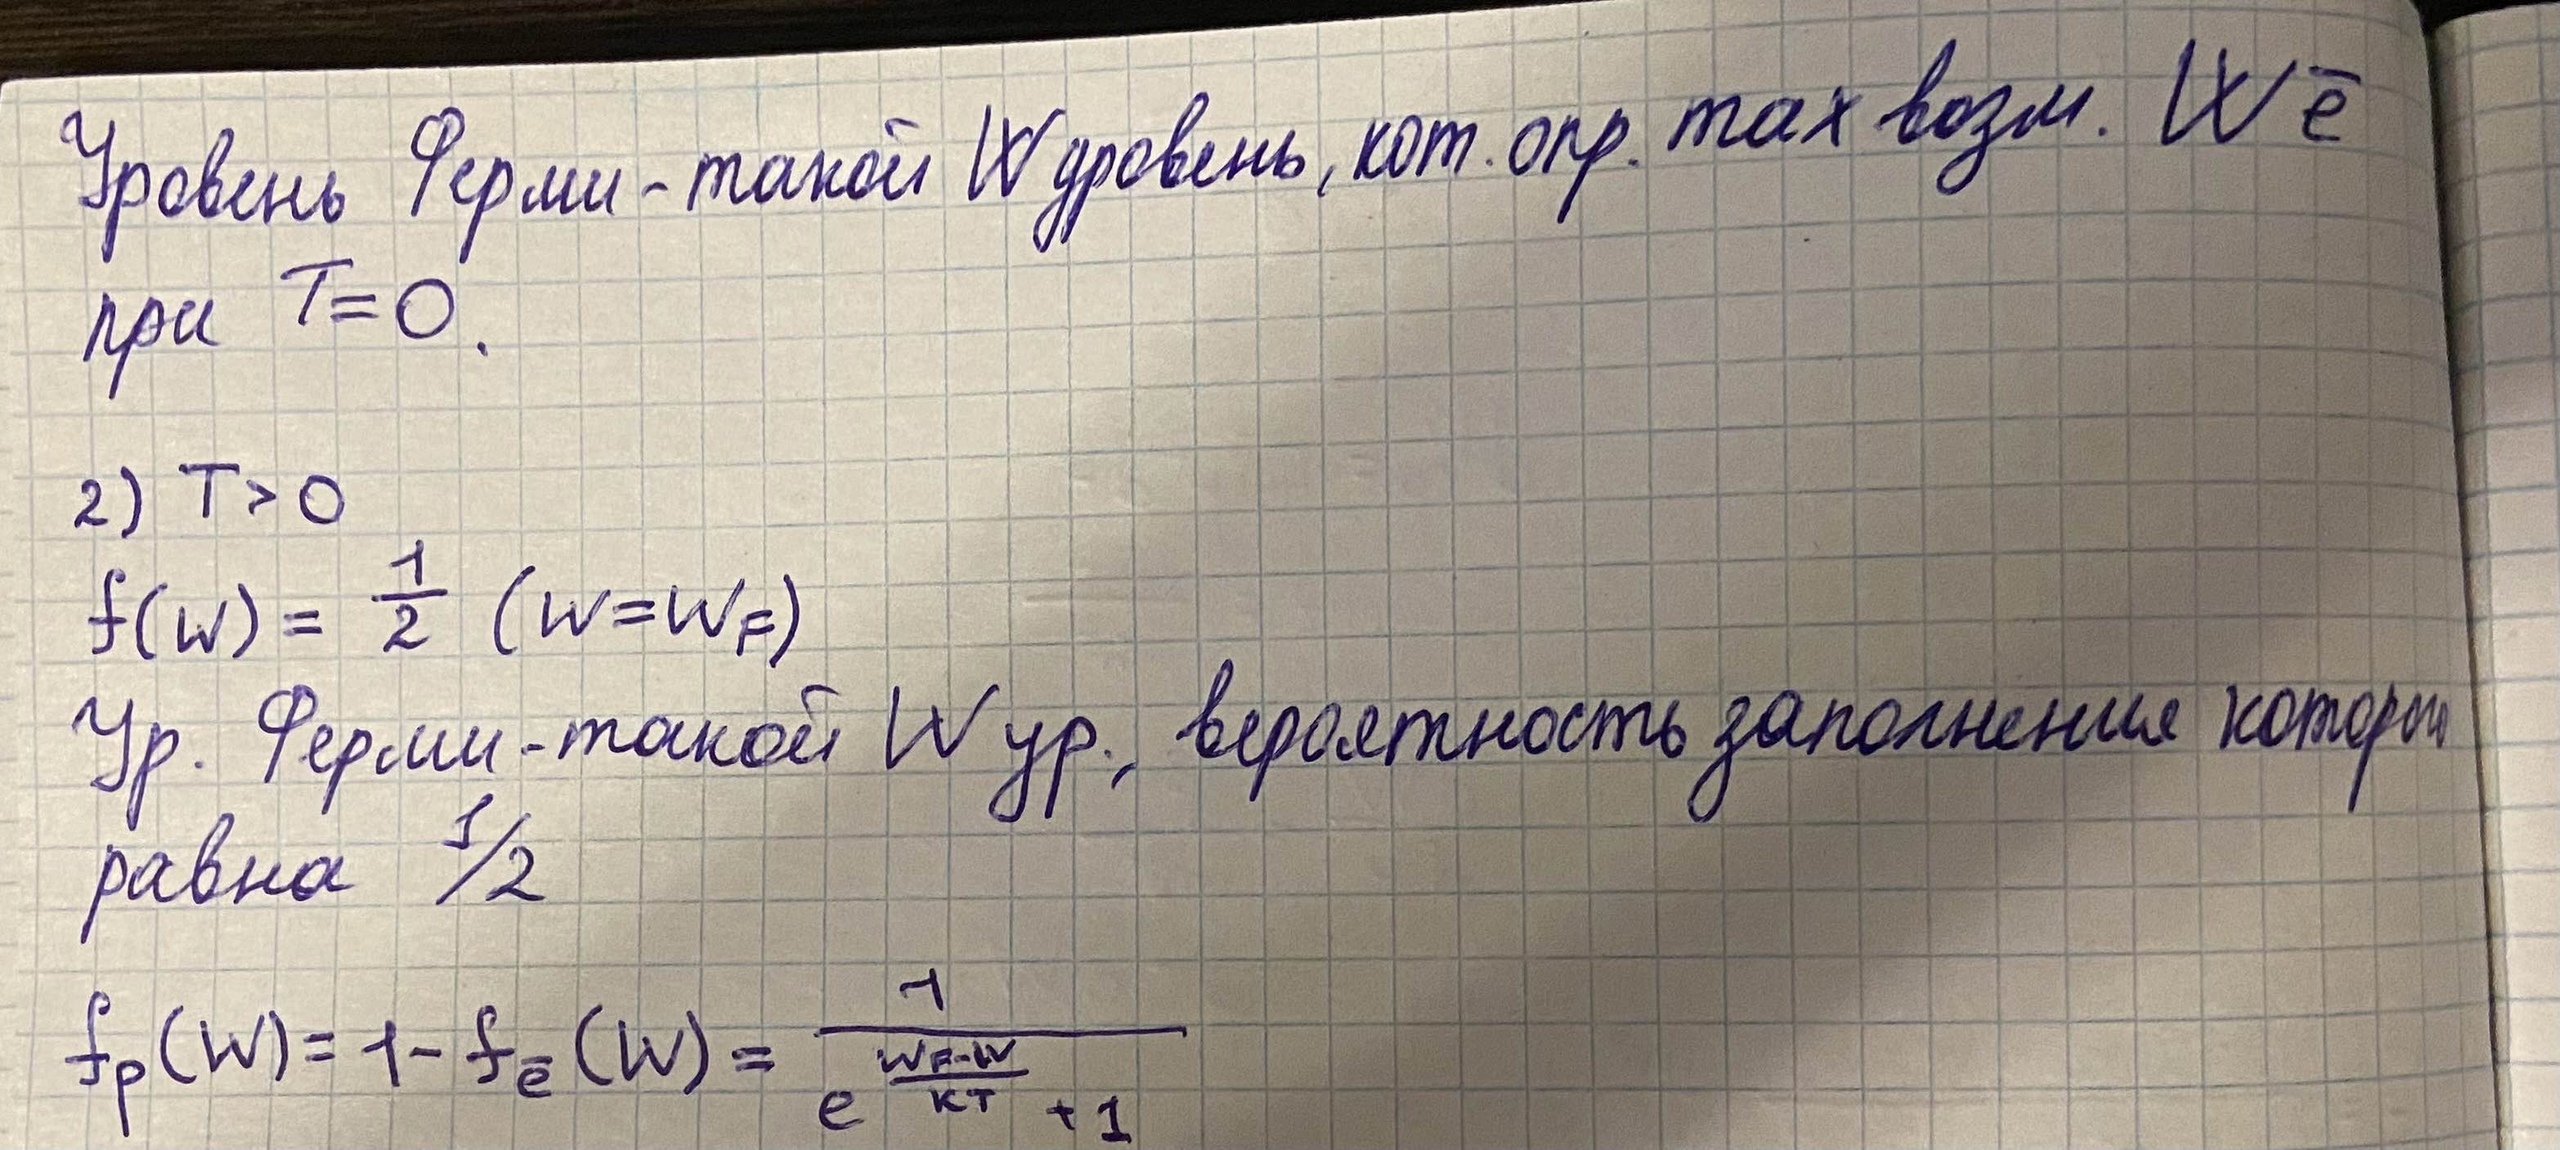 Уровень Ферми - такой W уровень, кот. опр. max возм. W ē
при T=0.
2) T>0
f(W) = 1/2 (W=W_F)
Ур. Ферми - такой W ур., вероятность заполнения которого
равна 1/2
f_p(W) = 1 - f_ē(W) = 1/(e^((W_F-W)/кТ) + 1)